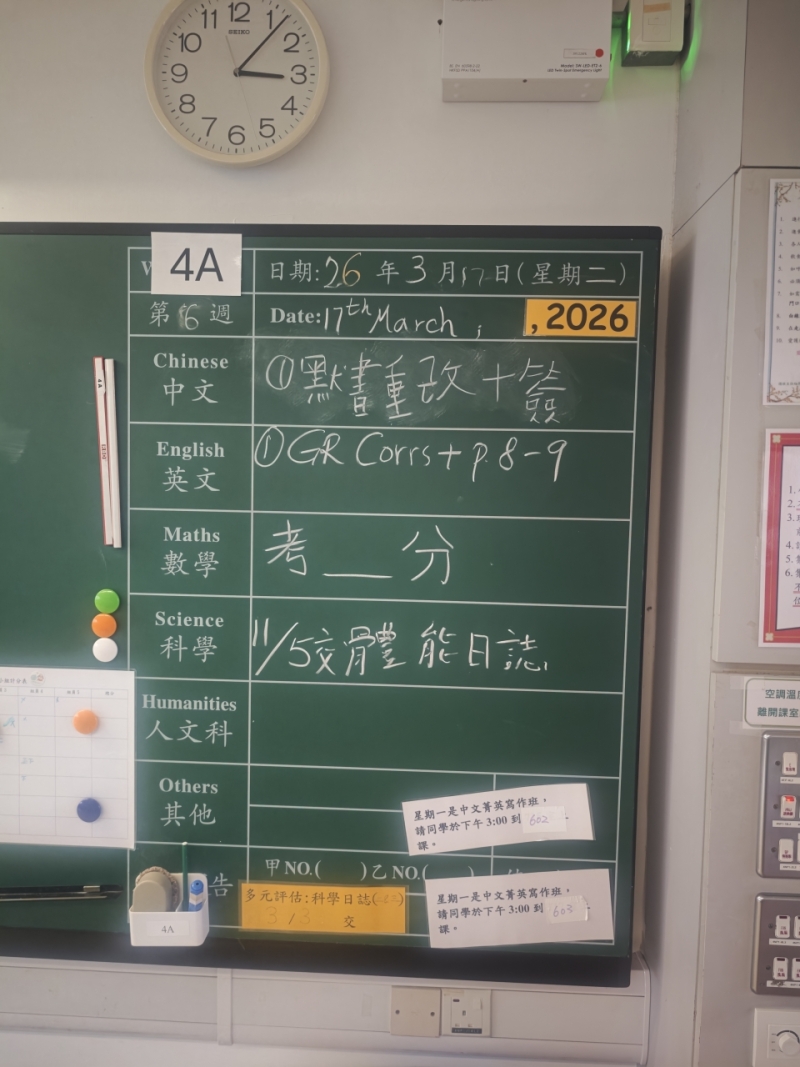 11 12 1
10 2
SEIKO
9 3
8 4
7 6 5
4A
日期:26年3月17日(星期二)
第6週
Date:17th March, , 2026
Chinese
中文
①默書重改+簽
English
英文
①GR Corrs+p.8-9
Maths
數學
考__分
Science
科學
11/5交體能日誌
Humanities
人文科
Others
其他
星期一是中文菁英寫作班,
請同學於下午3:00到602
課。
甲NO.( )乙NO.( )
告
多元評估:科學日誌
3/3 交
星期一是中文菁英寫作班,
請同學於下午3:00到603
課。
4A
空調溫
離開課室